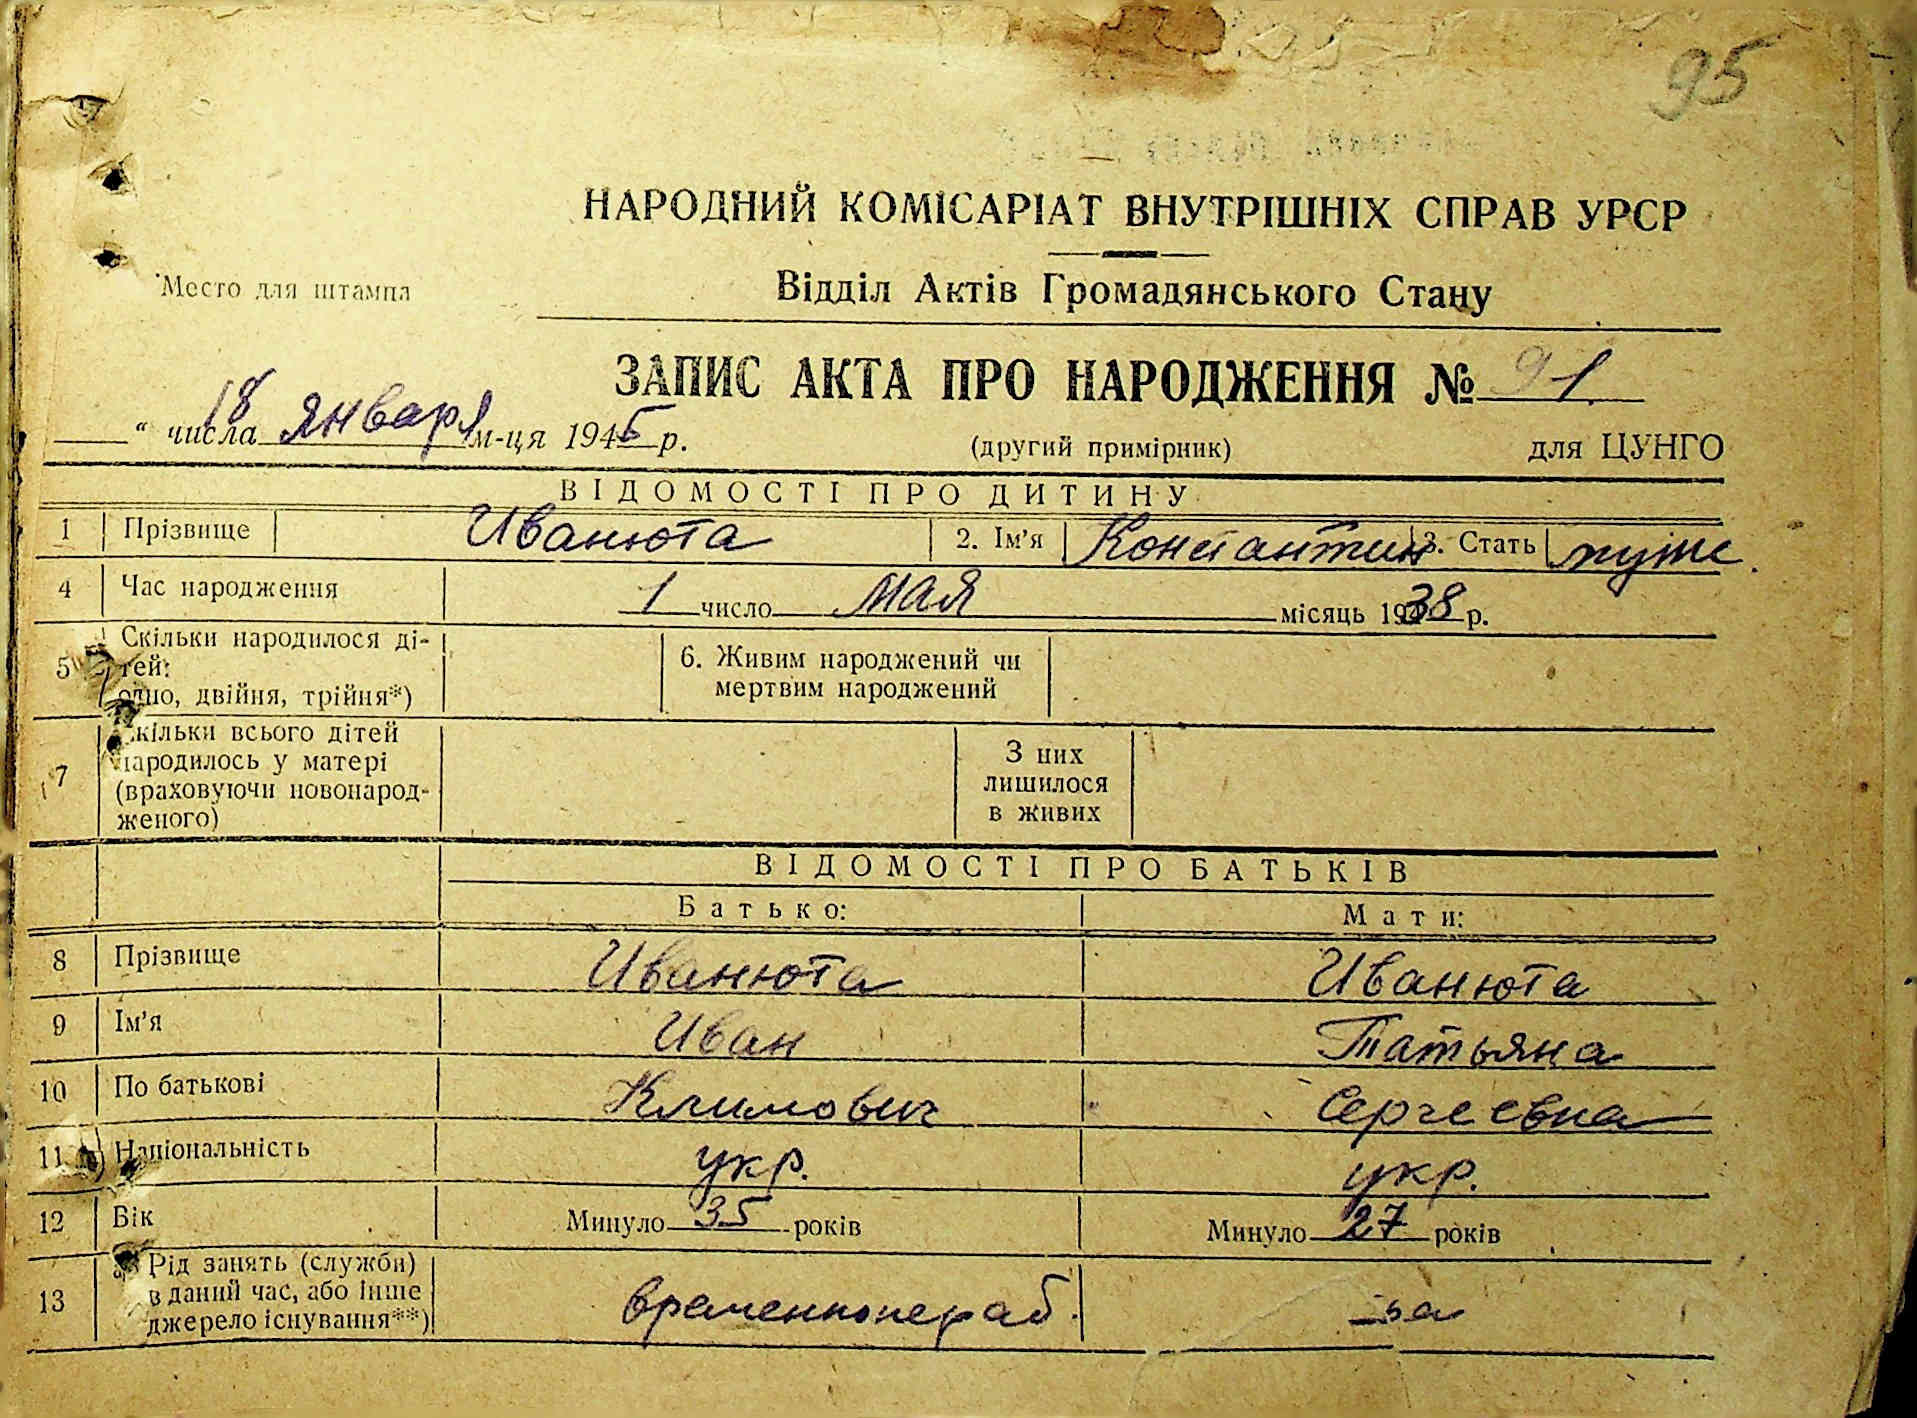 95
НАРОДНИЙ КОМІСАРІАТ ВНУТРІШНІХ СПРАВ УРСР
Место для штампа
Відділ Актів Громадянського Стану
ЗАПИС АКТА ПРО НАРОДЖЕННЯ № 91
18 “ числа января м-ця 1945 р.
(другий примірник) для ЦУНГО
ВІДОМОСТІ ПРО ДИТИНУ
1 Прізвище Иванюта 2. Ім'я Константин 3. Стать муж.
4 Час народження 1 число мая місяць 1938 р.
5 Скільки народилося ді-
тей:
одно, двійня, трійня*)
6. Живим народжений чи
мертвим народжений
7 Скільки всього дітей
народилось у матері
(враховуючи новонарод-
женого)
З них
лишилося
в живих
ВІДОМОСТІ ПРО БАТЬКІВ
Батько: Мати:
8 Прізвище Иванюта Иванюта
9 Ім'я Иван Татьяна
10 По батькові Климович Сергеевна
11 Національність укр. укр.
12 Вік Минуло 35 років Минуло 27 років
13 а) Рід занять (служби)
в даний час, або інше
джерело існування**)
временно не раб.